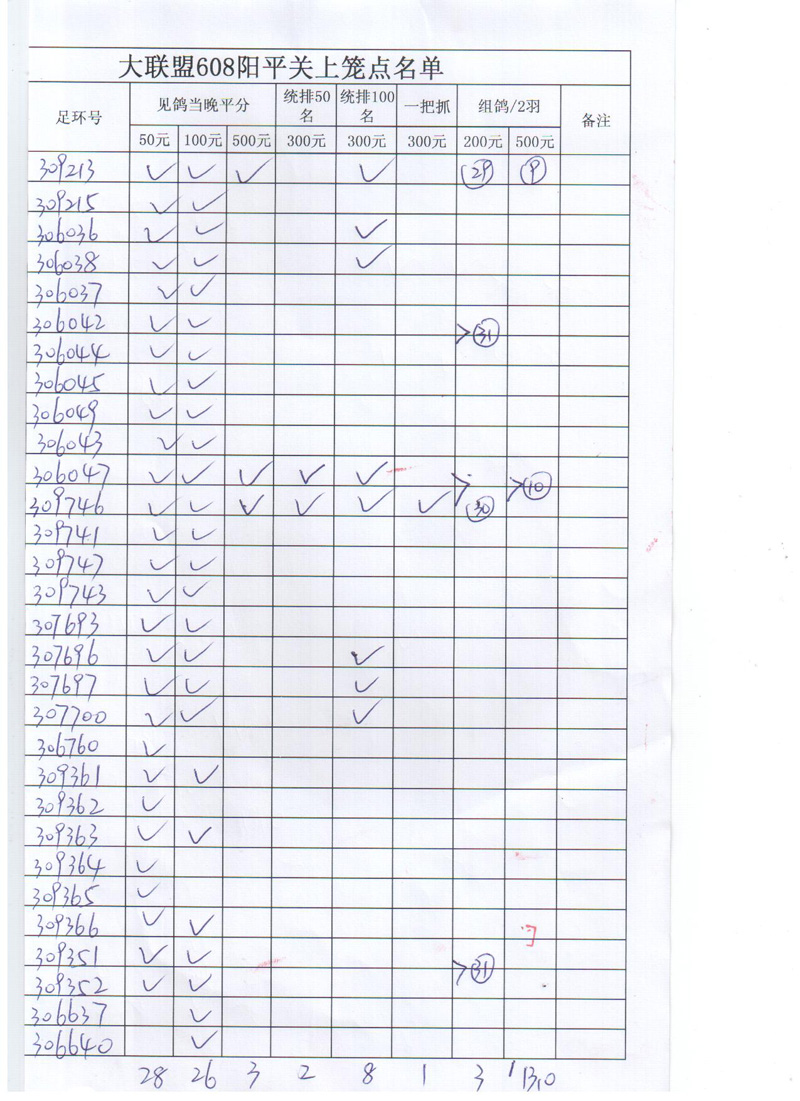 大联盟608阳平关上笼点名单
足环号 见鸽当晚平分 统排50名 统排100名 一把抓 组鸽/2羽 备注
50元 100元 500元 300元 300元 300元 200元 500元
309213 ✓ ✓ ✓ ✓ 29 9
309215 ✓ ✓
306036 ✓ ✓ ✓
306038 ✓ ✓ ✓
306037 ✓ ✓
306042 ✓ ✓ >31
306044 ✓ ✓
306045 ✓ ✓
306049 ✓ ✓
306043 ✓ ✓
306047 ✓ ✓ ✓ ✓ ✓ > >10
309746 ✓ ✓ ✓ ✓ ✓ ✓ 30
309741 ✓ ✓
309747 ✓ ✓
309743 ✓ ✓
307693 ✓ ✓
307696 ✓ ✓ ✓
307697 ✓ ✓ ✓
307700 ✓ ✓ ✓
306760 ✓
309361 ✓ ✓
309362 ✓
309363 ✓ ✓
309364 ✓
309365 ✓
309366 ✓ ✓
309351 ✓ ✓ >31
309352 ✓ ✓
306637 ✓
306640 ✓
28 26 3 2 8 1 3 1